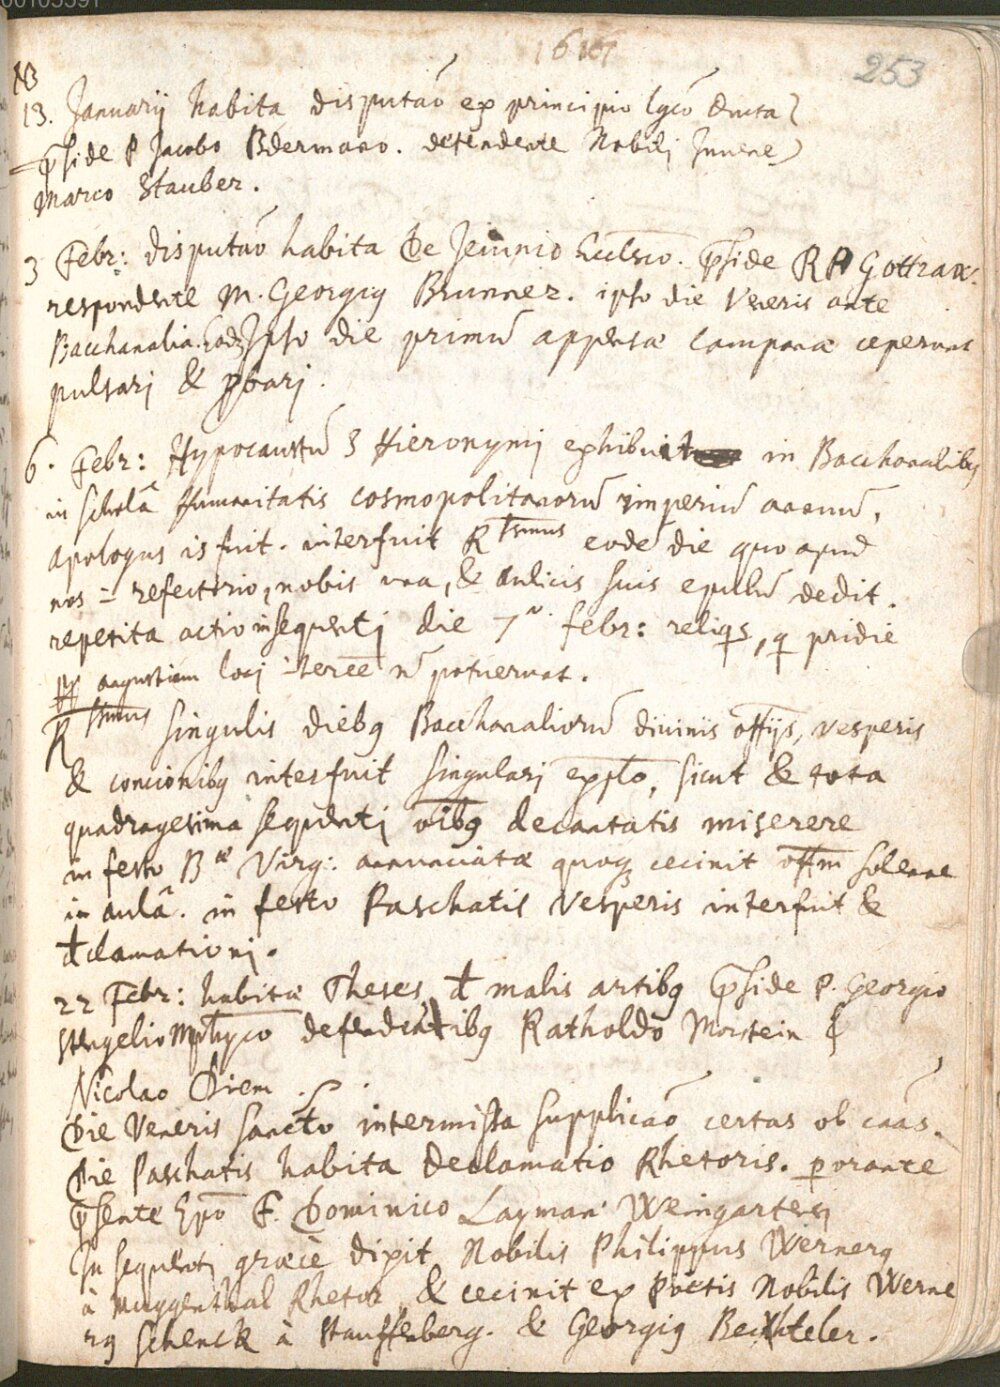 00105591
1617
253
NB
13. Januarij habita disputaõ ex principio
p̃side P Jacobo Bdermano. defendente Nobili Juvene
Marco Stauber.
3 Febr: disputaõ habita de Jeiunio Eccl̃sico. p̃side R P Gottrax:
respondente M. Georgig Brunner. ipso die Veneris ante
Bacchanalia. Ipso die primũ appensæ campanæ ceperunt
pulsari & p̃bari.
6. Febr: Hypocaustũ S Hieronymi exhibuit in Bacchanalibg
in scholâ Humanitatis cosmopolitanorũ imperiũ annuũ,
apologus is fuit. interfuit Rssimus eodẽ die quo apud
nos ĩ refectorio, nobis una, & aulicis suis epulũ dedit.
repetita actio insequenti die 7ª. febr: reliqs, q pridie
ꝓꝑ angustiam loci ĩteree ñ potuerunt.
Rssimus singulis diebg Bacchanaliorũ divinis offijs, vesperis
& concionibg interfuit singulari exp̃lo, sicut & tota
quadragesima sequenti oĩbg decantatis miserere
in festo Bæ Virg: annunciatæ quoqꝫ cecinit offm̃ solenne
in aulâ. in festo Paschatis Vesperis interfuit &
dclamationi.
22 Febr: habitæ Theses d malis artibg p̃side P. Georgio
Stengelio Mp̃hyco defendentibg Ratholdo Morstein &
Nicolao Diem.
Die Veneris sancto intermissa supplicaõ certas ob caãs.
Die Paschatis habita declamatio Rhetoris. perorante
p̃sente Ep̃o F. Dominico Layman Weingartensi
In sequenti græcè dixit Nobilis Philippus Wernerg
à Muggenthal Rhetor, & cecinit ex Poëtis Nobilis Werne
rg Schenck à Stauffenberg. & Georgig Bechteler.